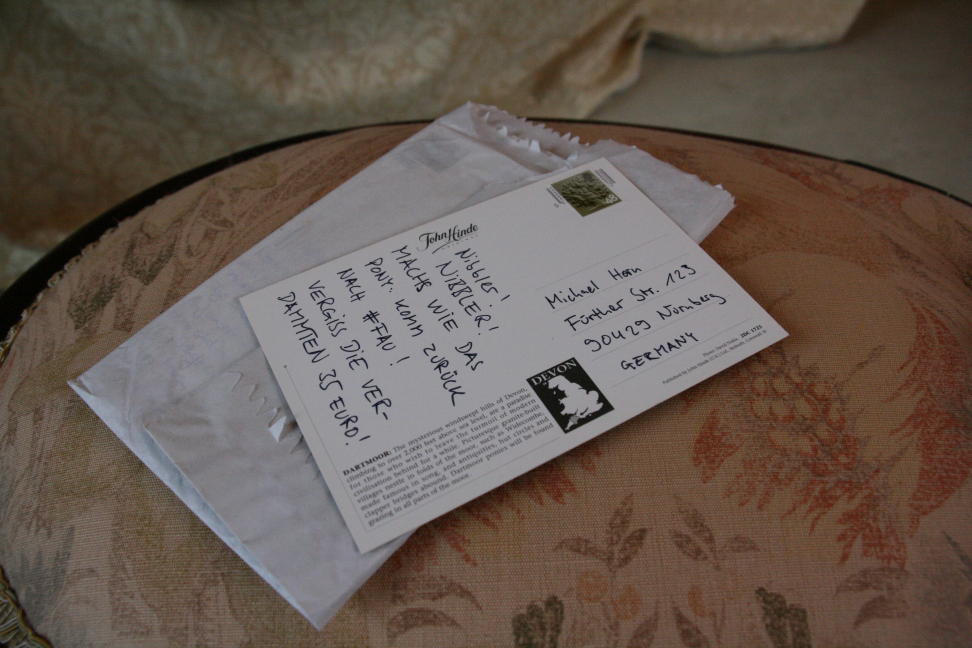 John Hinde
Nibbler!
NIBBLER!
MACHS WIE DAS
PONY. KOMM ZURÜCK
NACH #FAU!
VERGISS DIE VER-
DAMMTEN 35 EURO!
Michael Horn
Fürther Str. 123
90429 Nürnberg
GERMANY
DEVON
DARTMOOR: The mysterious windswept hills of Devon,
climbing to over 2,000 feet above sea level, are a paradise
for those who wish to leave the turmoil of modern
civilisation behind for a while. Picturesque granite-built
villages nestle in folds of the moor, such as Widecombe,
made famous in song, and antiquities, hut circles and
clapper bridges abound. Dartmoor ponies will be found
grazing in all parts of the moor.